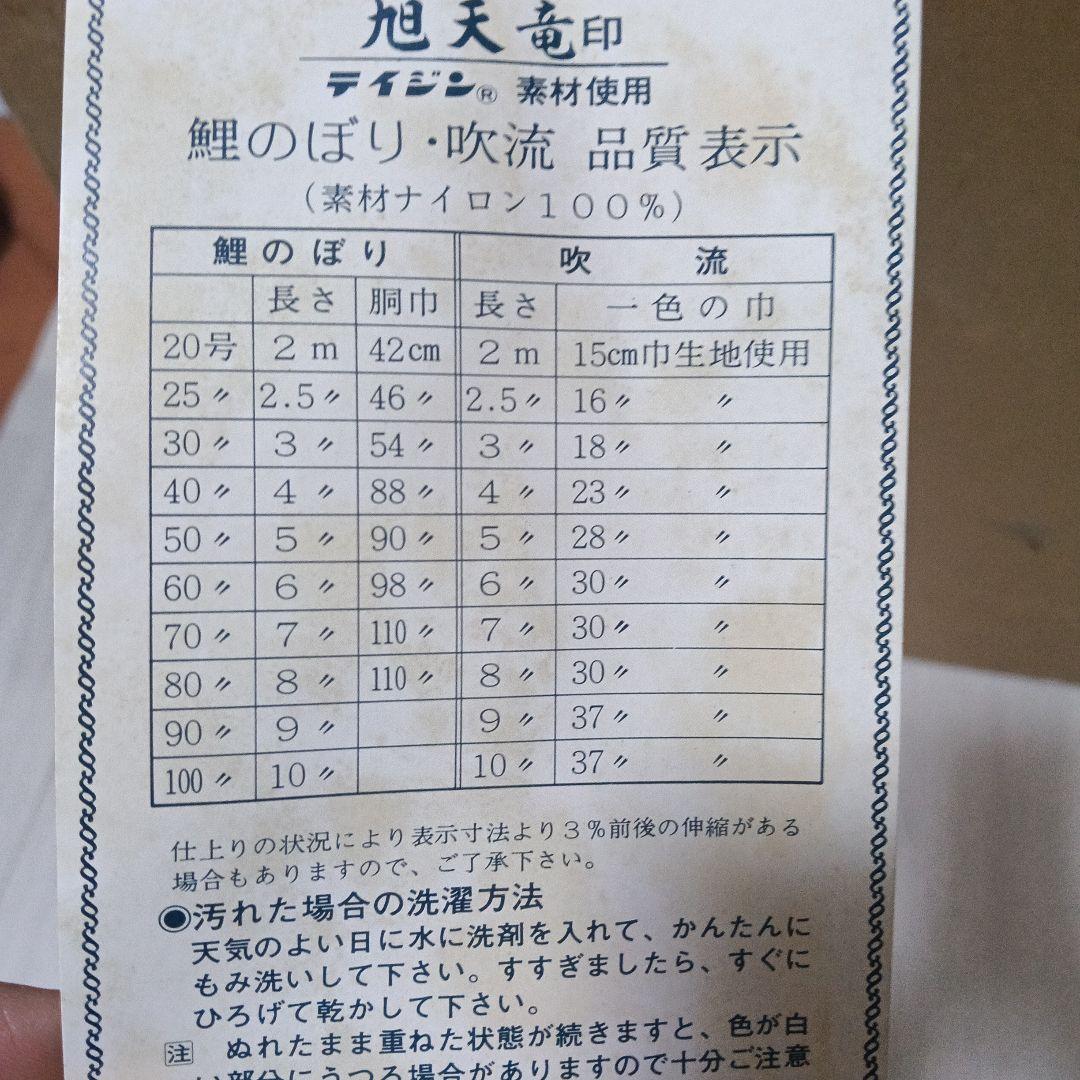 旭天竜印
テイジン® 素材使用
鯉のぼり・吹流 品質表示
(素材ナイロン100%)
鯉のぼり 吹流
長さ 胴巾 長さ 一色の巾
20号 2m 42cm 2m 15cm巾生地使用
25〃 2.5〃 46〃 2.5〃 16〃 〃
30〃 3〃 54〃 3〃 18〃 〃
40〃 4〃 88〃 4〃 23〃 〃
50〃 5〃 90〃 5〃 28〃 〃
60〃 6〃 98〃 6〃 30〃 〃
70〃 7〃 110〃 7〃 30〃 〃
80〃 8〃 110〃 8〃 30〃 〃
90〃 9〃 9〃 37〃 〃
100〃 10〃 10〃 37〃 〃
仕上りの状況により表示寸法より3%前後の伸縮がある
場合もありますので、ご了承下さい。
◉汚れた場合の洗濯方法
天気のよい日に水に洗剤を入れて、かんたんに
もみ洗いして下さい。すすぎましたら、すぐに
ひろげて乾かして下さい。
注 ぬれたまま重ねた状態が続きますと、色が白
い部分にうつる場合がありますので十分ご注意